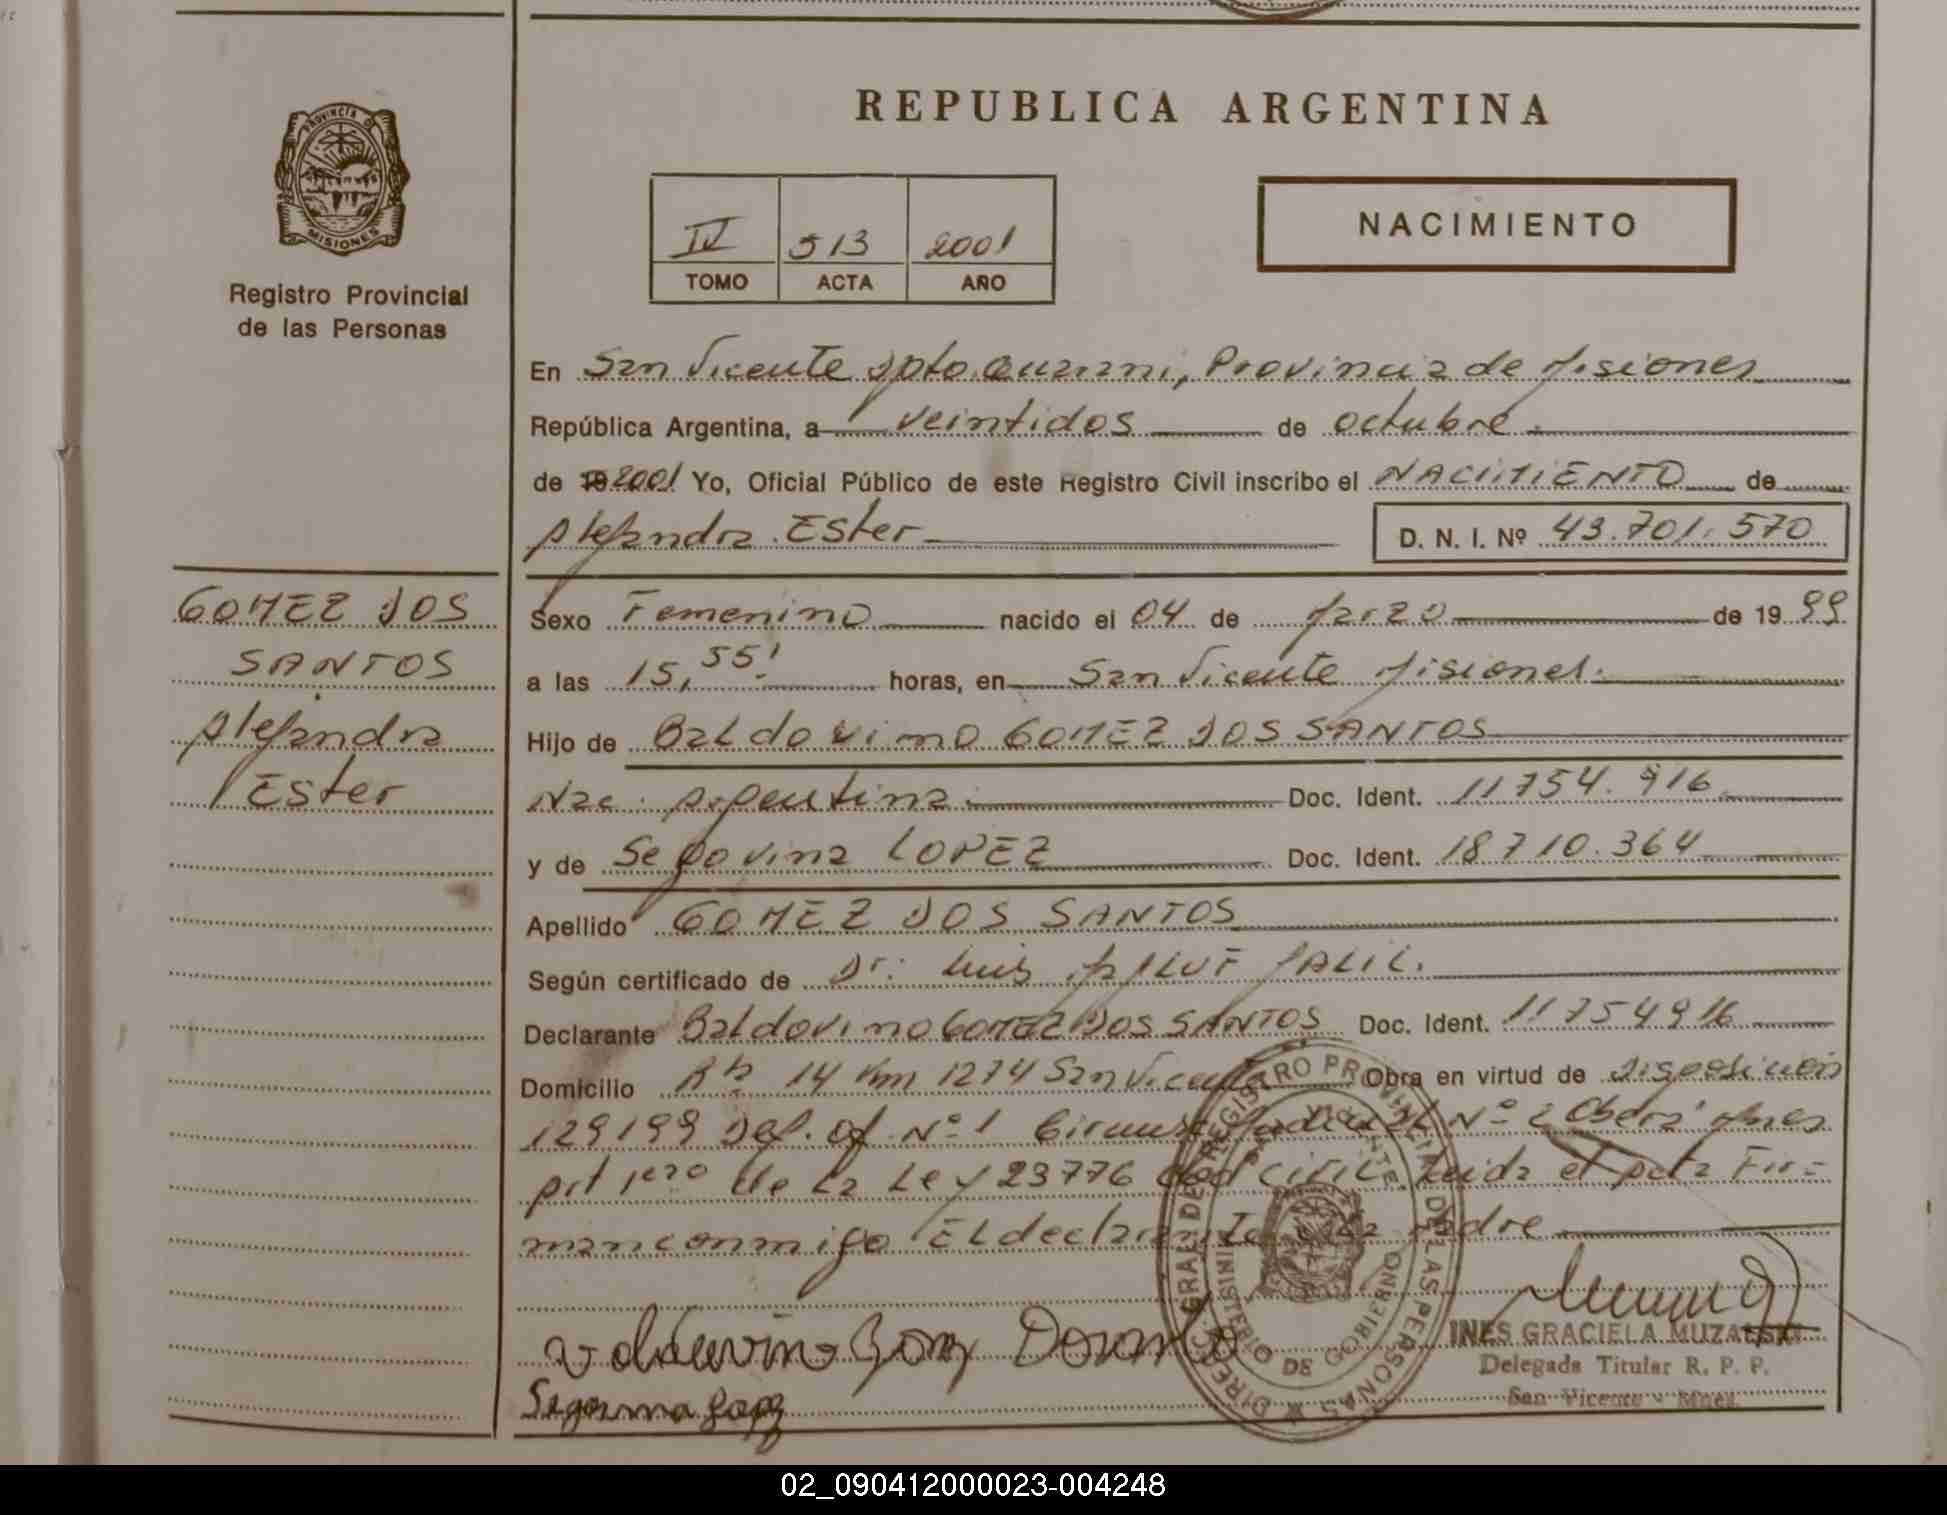 REPUBLICA ARGENTINA
PROVINCIA D
MISIONES
Registro Provincial
de las Personas
NACIMIENTO
IV 513 2001
TOMO ACTA AÑO
En San Vicente Dpto Guarani, Provincia de Misiones
República Argentina, a veintidos de octubre.
de 19 2001 Yo, Oficial Público de este Registro Civil inscribo el NACIMIENTO de
Alejandra Ester D. N. I. Nº 43.701.570
GOMEZ DOS
SANTOS
Alejandra
Ester
Sexo Femenino nacido el 04 de Marzo de 19 99
a las 15,55' horas, en San Vicente Misiones.
Hijo de Baldovino GOMEZ DOS SANTOS
Nac. Argentina. Doc. Ident. 11754.916
y de Segovina LOPEZ Doc. Ident. 18710.364
Apellido GOMEZ DOS SANTOS
Según certificado de Dr: Luis JALIL.
Declarante Baldovino GOMEZ DOS SANTOS Doc. Ident. 11754916
Domicilio Rta 14 Km 1274 San Vicente Obra en virtud de Disposición
129199 Def. Of. Nº 1 Nº 2 Oberá Mnes
Art 1ero de La Ley 23776 Cod CIVIL. Leida el acta Fir=
man conmigo El declarante La Madre
DIREC. GRAL. DE REGISTRO PROVINCIAL DE LAS PERSONAS
MINISTERIO DE GOBIERNO
SAN VICENTE
Segovina Lopez
INES GRACIELA MUZALSKI
Delegada Titular R. P. P.
San Vicente - Mnes.
02_090412000023-004248